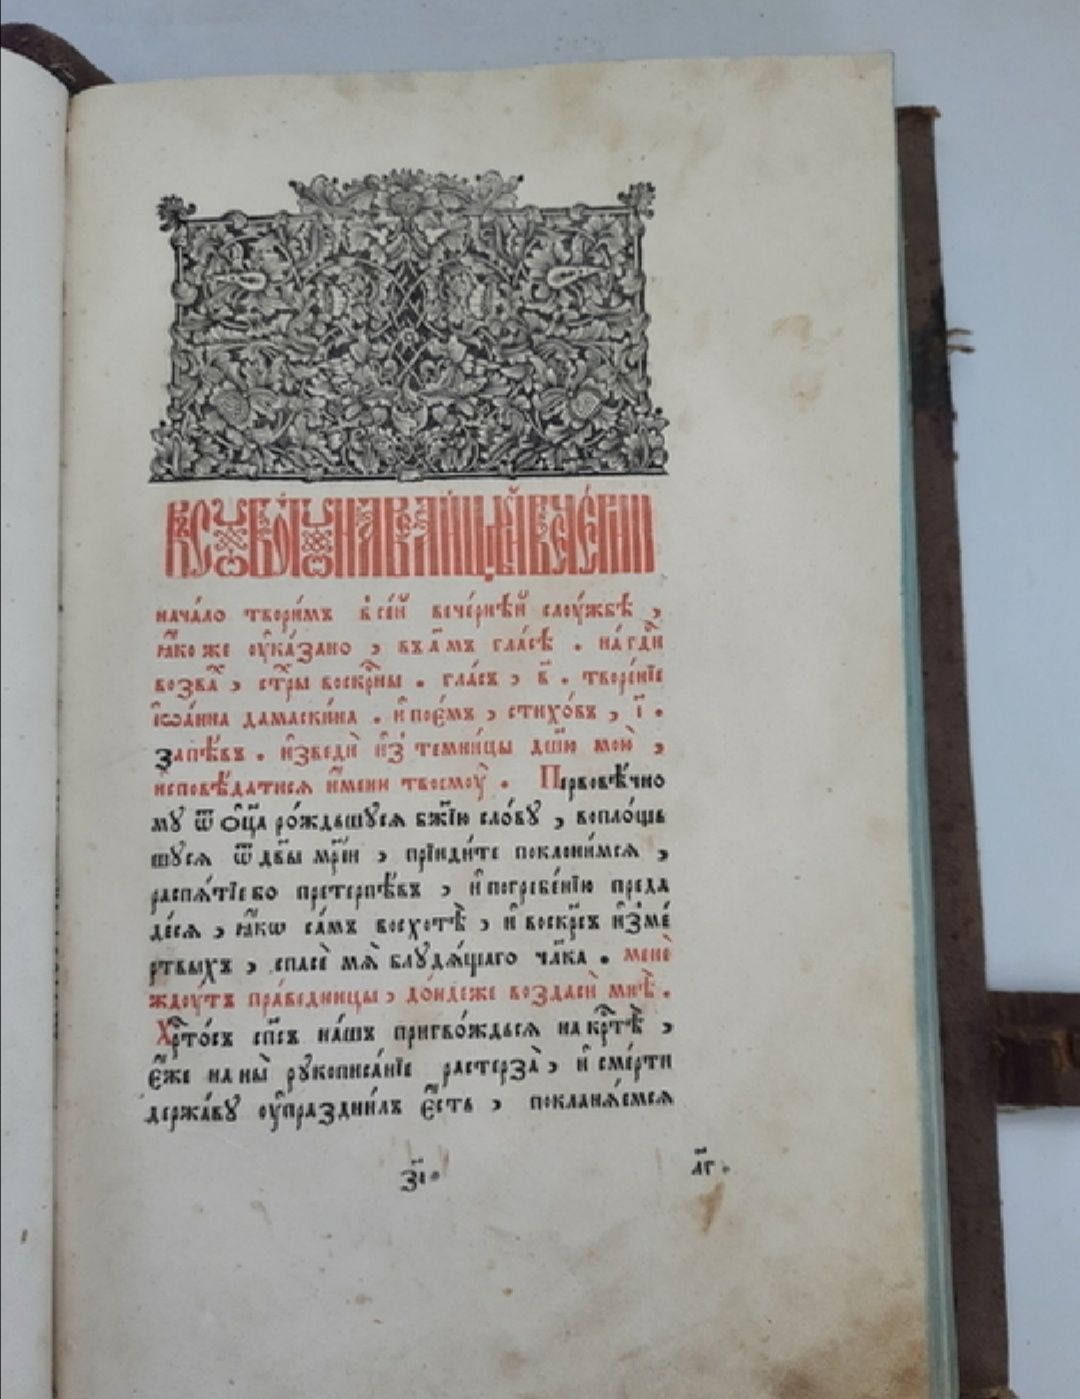 В̾ СꙋБОТꙋ НА ВЕЛИЦѢЙ ВЕЧЕРНИ
нача́ло твори́мъ в̾се́й вече́рнѣй слоу́жбѣ ,
ꙗ҆́коже оу҆ка́зано , въ а҃мъ гла́сѣ . на́ гдⷭ҇и
возва́ , стⷯры воскрⷭ҇ны . гла́съ , в҃ . творе́нїе
і҆ѡа́нна дамаски́на . и҆ пое́мъ , стихо́въ , і҃ .
Запѣ́въ . и҆зведѝ и҆з̾ темни́цы дш҃ꙋ мою̀ ,
исповѣ́датися и҆́мени твоемоу̀ . Первовѣ́чно
мꙋ ѿ ѻ҆ц҃а ро́ждьшꙋся бж҃їю сло́вꙋ , вопло́щь
шꙋся ѿ двⷭ҇ы мр҃їи , прїиди́те поклони́мся ,
распѧ́тїе бо претерпѣ́въ , и҆ погребе́нїю преда
де́ся , ꙗ҆́кѡ са́мъ восхотѣ̀ , и҆ воскр҃съ и҆з̾ ме́
ртвыхъ , спасе́ мѧ̀ блꙋдѧ́щаго чл҃ка . менѐ
ждоу́тъ пра́ведницы , до́ндеже возда́си мнѣ̀ .
Хрⷭ҇то́съ сп҃съ на́шъ пригво́ждься на крⷭ҇тѣ̀ ,
є҆́же на ны̀ рꙋкописа́нїе растерза̀ , и҆ сме́рти
держа́вꙋ оу҆праздни́лъ є҆́сть , покланѧ́емся
з҃і .
л҃г .